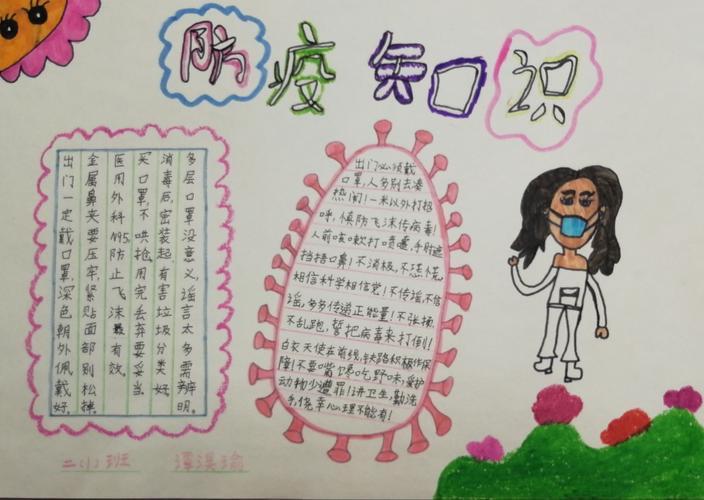 防疫知识
出门一定戴口罩,深色朝外佩戴好,
金属鼻夹要压牢,紧贴面部别松掉。
医用外科N95,防止飞沫最有效。
买口罩,不哄抢,用完丢弃要妥当。
消毒后,密装起,有害垃圾分类好。
多层口罩没意义,谣言太多需辨明。
出门必须戴
口罩,人多别去凑
热闹!一米以外打招
呼,慎防飞沫传病毒!
人前咳嗽打喷嚏,手肘遮
挡捂口鼻!不消极,不恐慌,
相信科学相信党!不传谣,不信
谣,多多传递正能量!不张扬,
不乱跑,誓把病毒来打倒!
白衣天使在前线,铁路积极作保
障!不要嘴馋吃野味,爱护
动物少遭罪!讲卫生,勤洗
手,侥幸心理不能有!
二(1)班